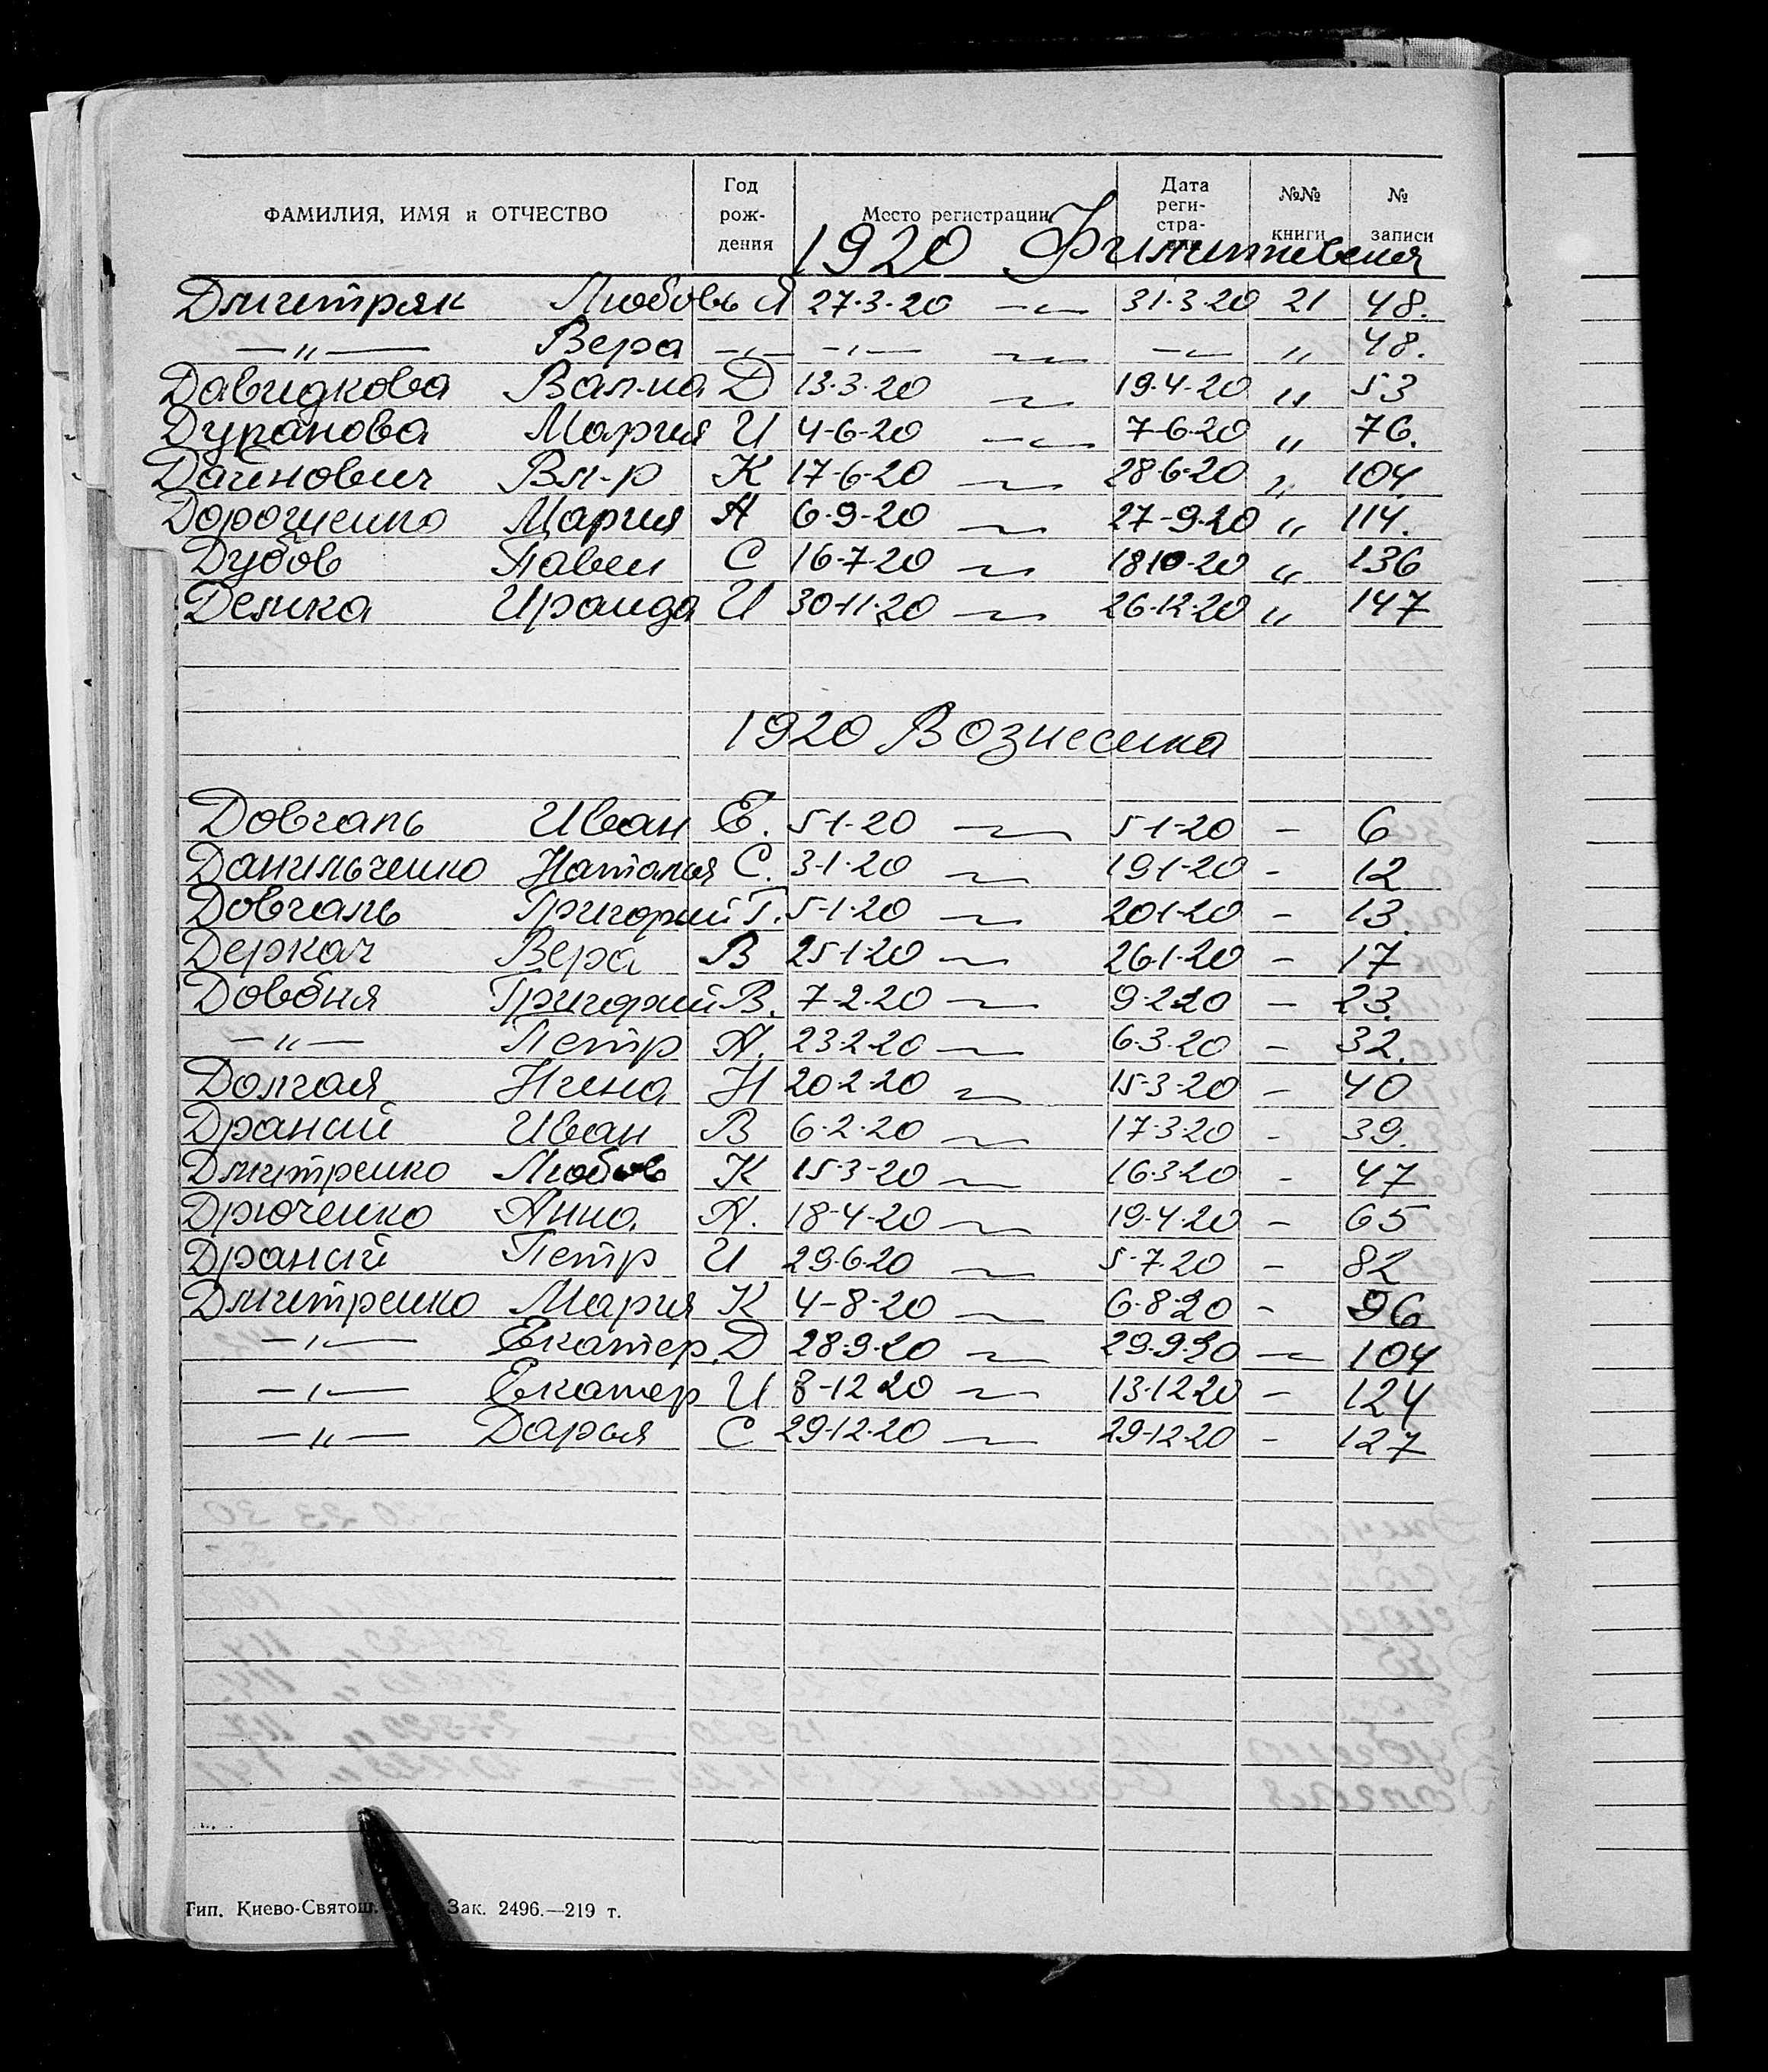 ФАМИЛИЯ, ИМЯ и ОТЧЕСТВО Год рож- дения Место регистрации Дата реги- стра- №№ книги № записи
1920
Дмитряк Любовь Я 27·3·20 —〃— 31·3·20 21 48.
—〃— Вера —〃— —〃— —〃— —〃— 〃 48.
Давидкова Вал-на Д 13·3·20 —〃— 19·4·20 〃 53
Дуранова Мария И 4-6-20 —〃— 7-6-20 〃 76.
Дайнович Вл-р К 17-6-20 —〃— 28·6·20 〃 104
Дорошенко Мария А 6·9-20 —〃— 27-9·20 〃 114.
Дубов Павел С 16·7·20 —〃— 1810·20 〃 136
Демка Ираида И 30·11·20 —〃— 26·12·20 〃 147
1920 Вознесенка
Довгань Иван Е. 5·1·20 —〃— 5·1-20 – 6
Данильченко Наталья С. 3·1·20 —〃— 19·1·20 – 12
Довгаль Григорий Г. 5·1·20 —〃— 20·1·20 – 13.
Деркач Вера В 25·1·20 —〃— 26·1·20 – 17
Довбня Григорий В. 7-2·20 —〃— 9·2·20 – 23.
—〃— Петр А. 23·2·20 —〃— 6·3·20 – 32.
Долгая Нина Н 20·2·20 —〃— 15·3·20 – 40
Драный Иван В 6·2·20 —〃— 17·3·20 – 39.
Дмитренко Любовь К 15·3-20 —〃— 16·3·20 – 47
Дрюченко Анна А. 18-4-20 —〃— 19·4·20 – 65
Драный Петр И 29·6·20 —〃— 5·7·20 – 82
Дмитренко Мария К 4-8-20 —〃— 6·8·20 – 96
—〃— Екатер. Д 28·9·20 —〃— 29·9·20 — 104
—〃— Екатер И 8-12 20 —〃— 13·12·20 – 124
—〃— Дарья С 29·12·20 —〃— 29·12·20 – 127
Тип. Киево-Святош. Зак. 2496.—219 т.